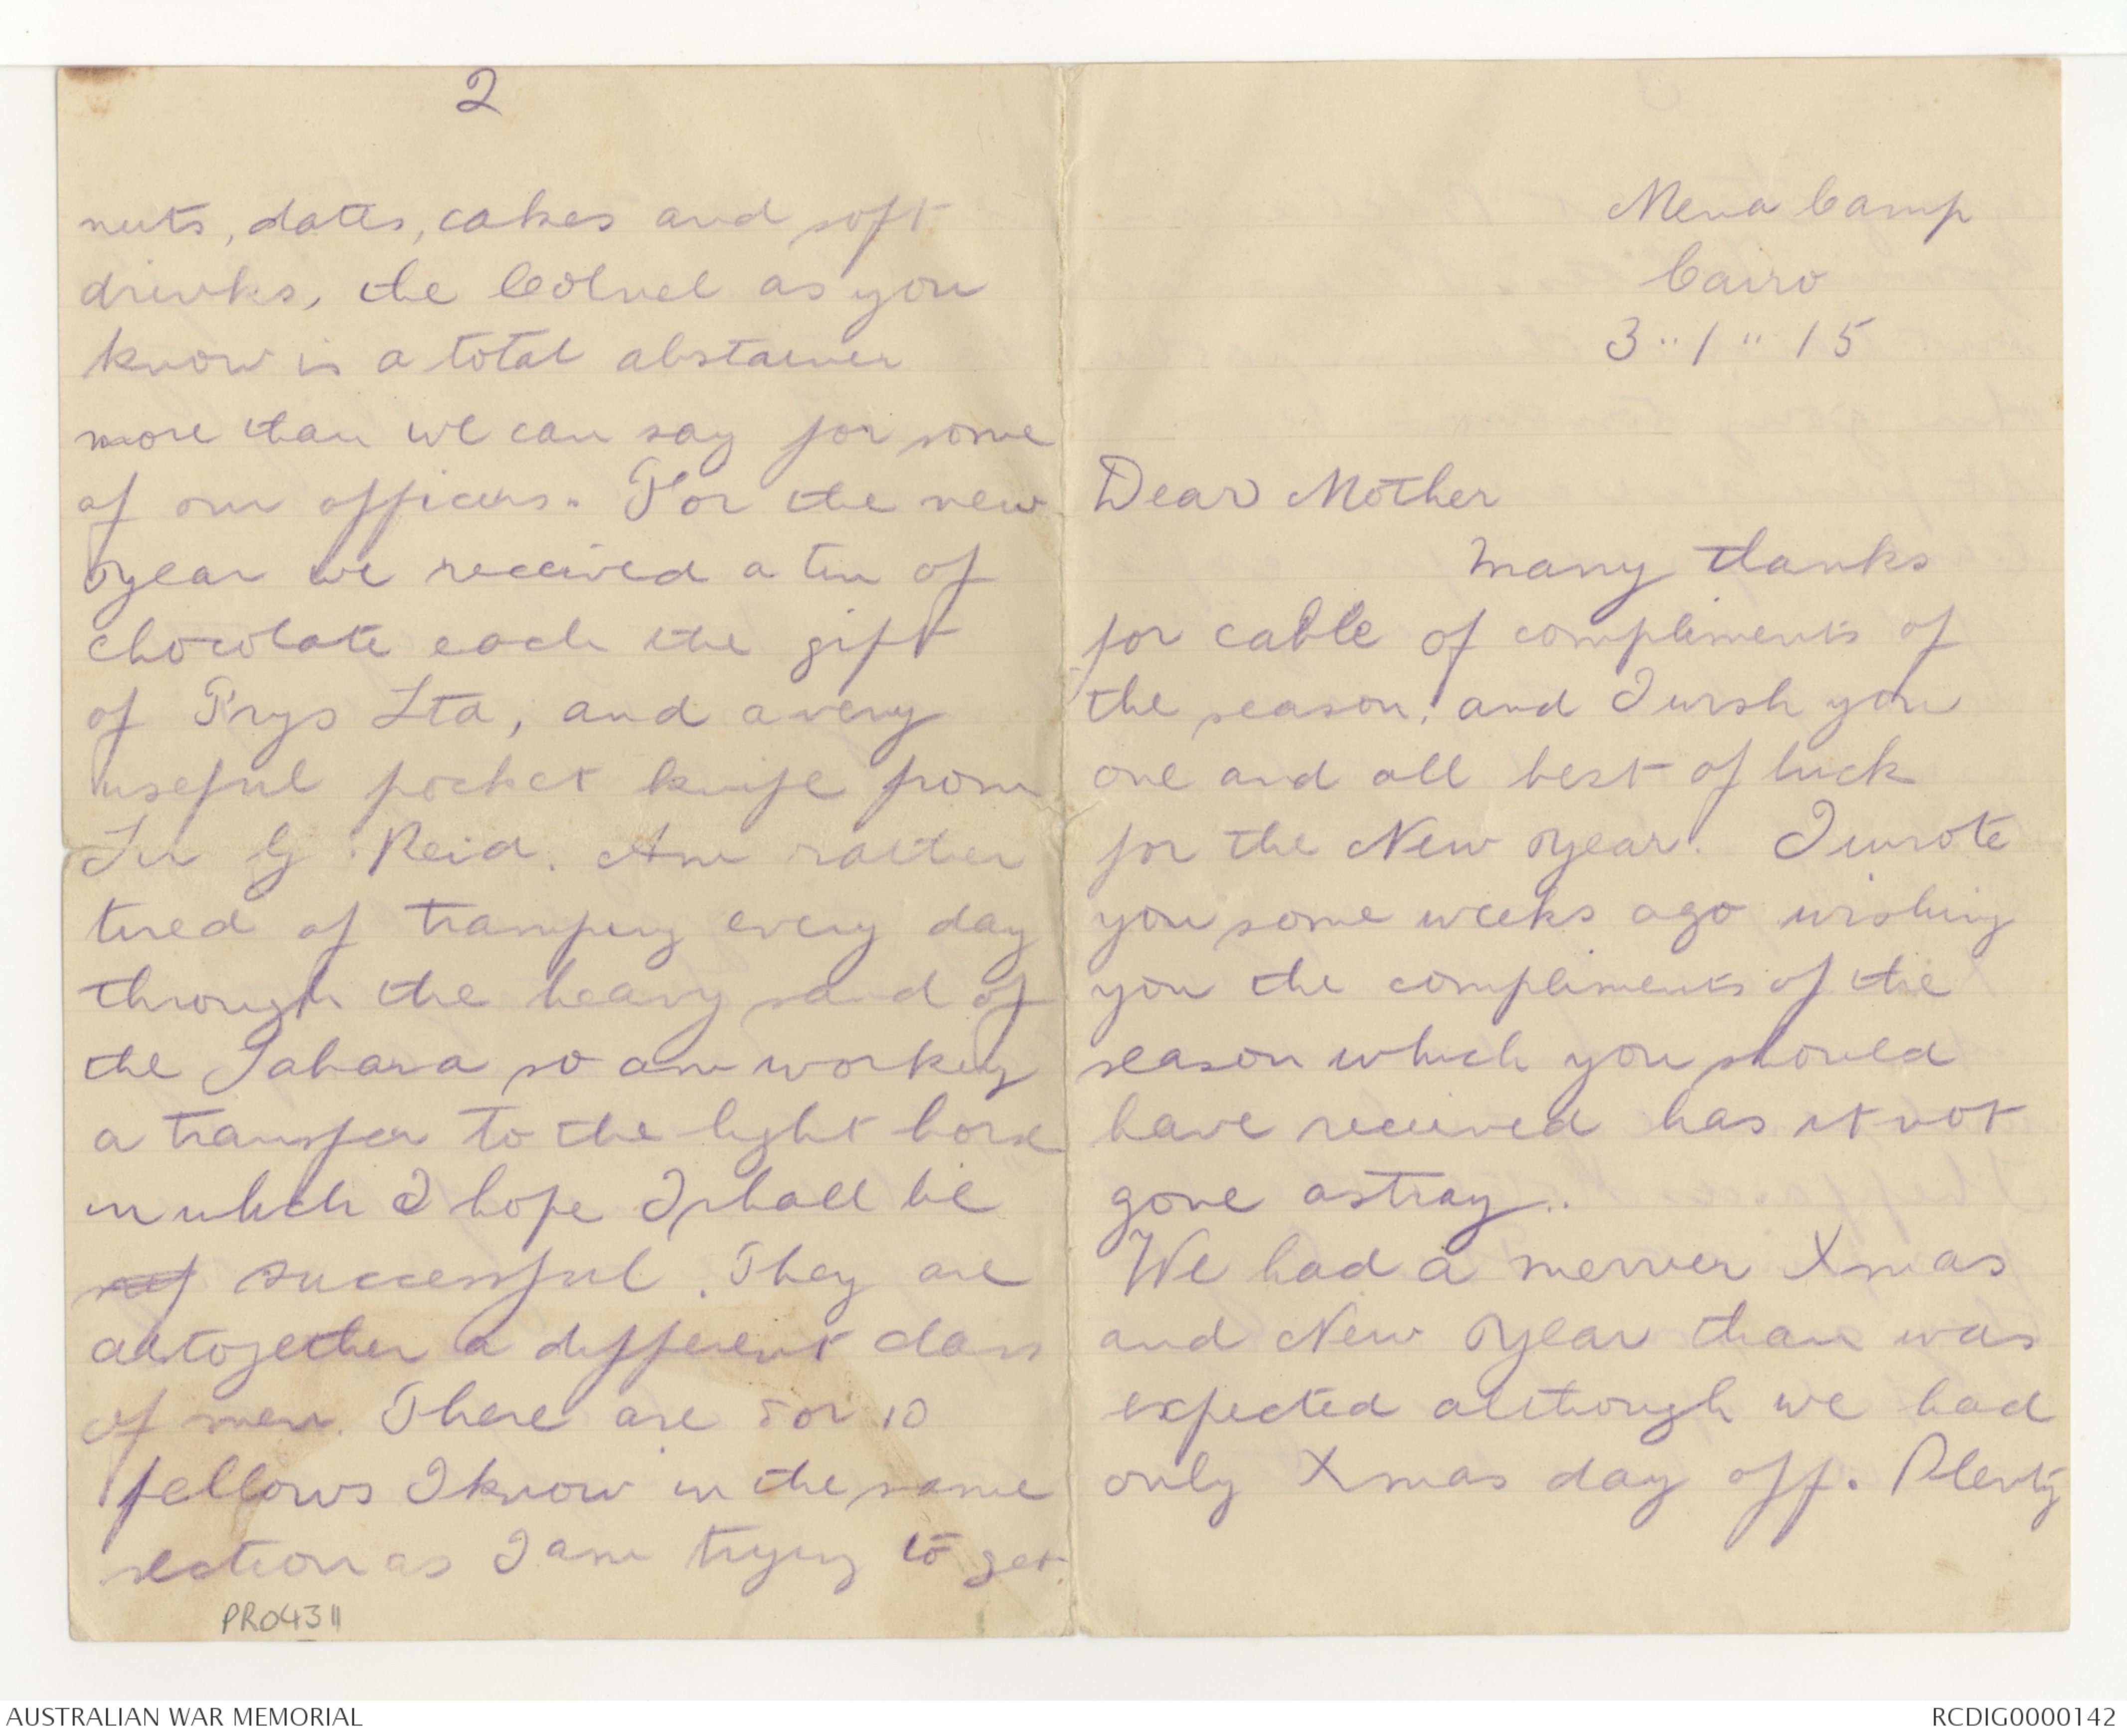 Mena Camp
Cairo
3 " 1 " 15
Dear Mother
Many thanks
for cable of compliments of
the season, and I wish you
one and all best of luck
for the New Year. I wrote
you some weeks ago wishing
you the compliments of the
season which you should
have received has it not
gone astray..
We had a merrier Xmas
and New Year than was
expected although we had
only Xmas day off. Plenty
2
nuts, dates, cakes and soft
drinks, the Colnel as you
know is a total abstainer
more than we can say for some
of our officers. For the new
year we received a tin of
chocolate each the gift
of Frys Ltd, and a very
useful pocket knife from
Sir G Reid. Am rather
tired of tramping every day
through the heavy sand of
the Sahara so am working
a transfer to the light horse
in which I hope I shall be
successful. They are
altogether a different class
of men. There are 8 or 10
fellows I know in the same
section as I am trying to get
PR04311
AUSTRALIAN WAR MEMORIAL
RCDIG0000142